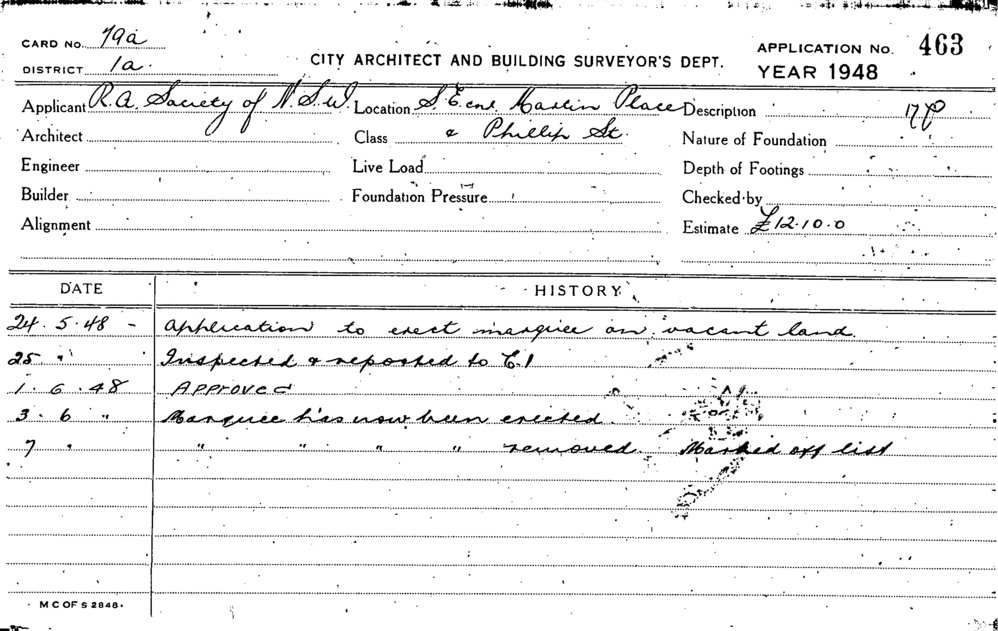 CARD No. 79a
DISTRICT 1a.
CITY ARCHITECT AND BUILDING SURVEYOR'S DEPT.
APPLICATION No. 463
YEAR 1948
Applicant R.A. Society of N.S.W. Location S.E. cnr. Martin Place Description
Architect Class & Phillip St. Nature of Foundation
Engineer Live Load Depth of Footings
Builder Foundation Pressure Checked by
Alignment Estimate £12.10.0
DATE HISTORY
24.5.48 - Application to erect marquee on vacant land
25 " Inspected & reported to C.I
1.6.48 Approved
3.6 " Marquee has now been erected.
7 " " " " " removed. Marked off list
M C OF S 2848.